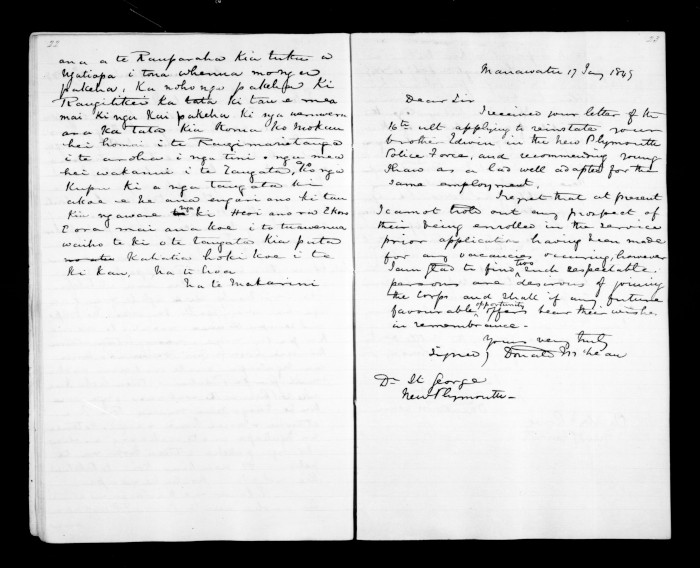 22
ana a te Rauparaha kia tuku a
Ngatiapa i tona whenua mo nga
pakeha, Ka noho nga pakeha ki
Rangitikei ka tata ki tau e mea
mai ki nga kai pakeha ki nga
ana Ka tata Kia Roma Ko Mokau
hei homai i te Rangimarietanga
i te aroha i nga tini o nga mea
hei whakamui i te Tangata, Ko nga
Kupu ki a nga tangata ki
akoe e he ana engari ano ki tau
Kia ngawari nga ki Heoi ano ra E hoa
E ora mai ana koe i to tuawenua
waiho te ki o te Tangata kia puta
Kahatia hoki koe i te
ki Kau. Na to hoa
Na te Makarini
23
Manawatu 17 Jany 1849
Dear Sir
I received your letter of the
16th ult applying to reinstate your
brother Edwin in the New Plymouth
Police Force, and recommending young
Shaw as a lad well adapted for the
same employment.
I regret that at present
I cannot hold out any prospect of
their being enrolled in the service
prior application having been made
for any vacancies occuring, however
I am glad to find two such respectable
persons are desirous of joining
the Corps and shall if any future
favourable opportunity offers bear their wishes
in remembrance.
Yours very truly
Signed) Donald McLean
Dr St George
New Plymouth